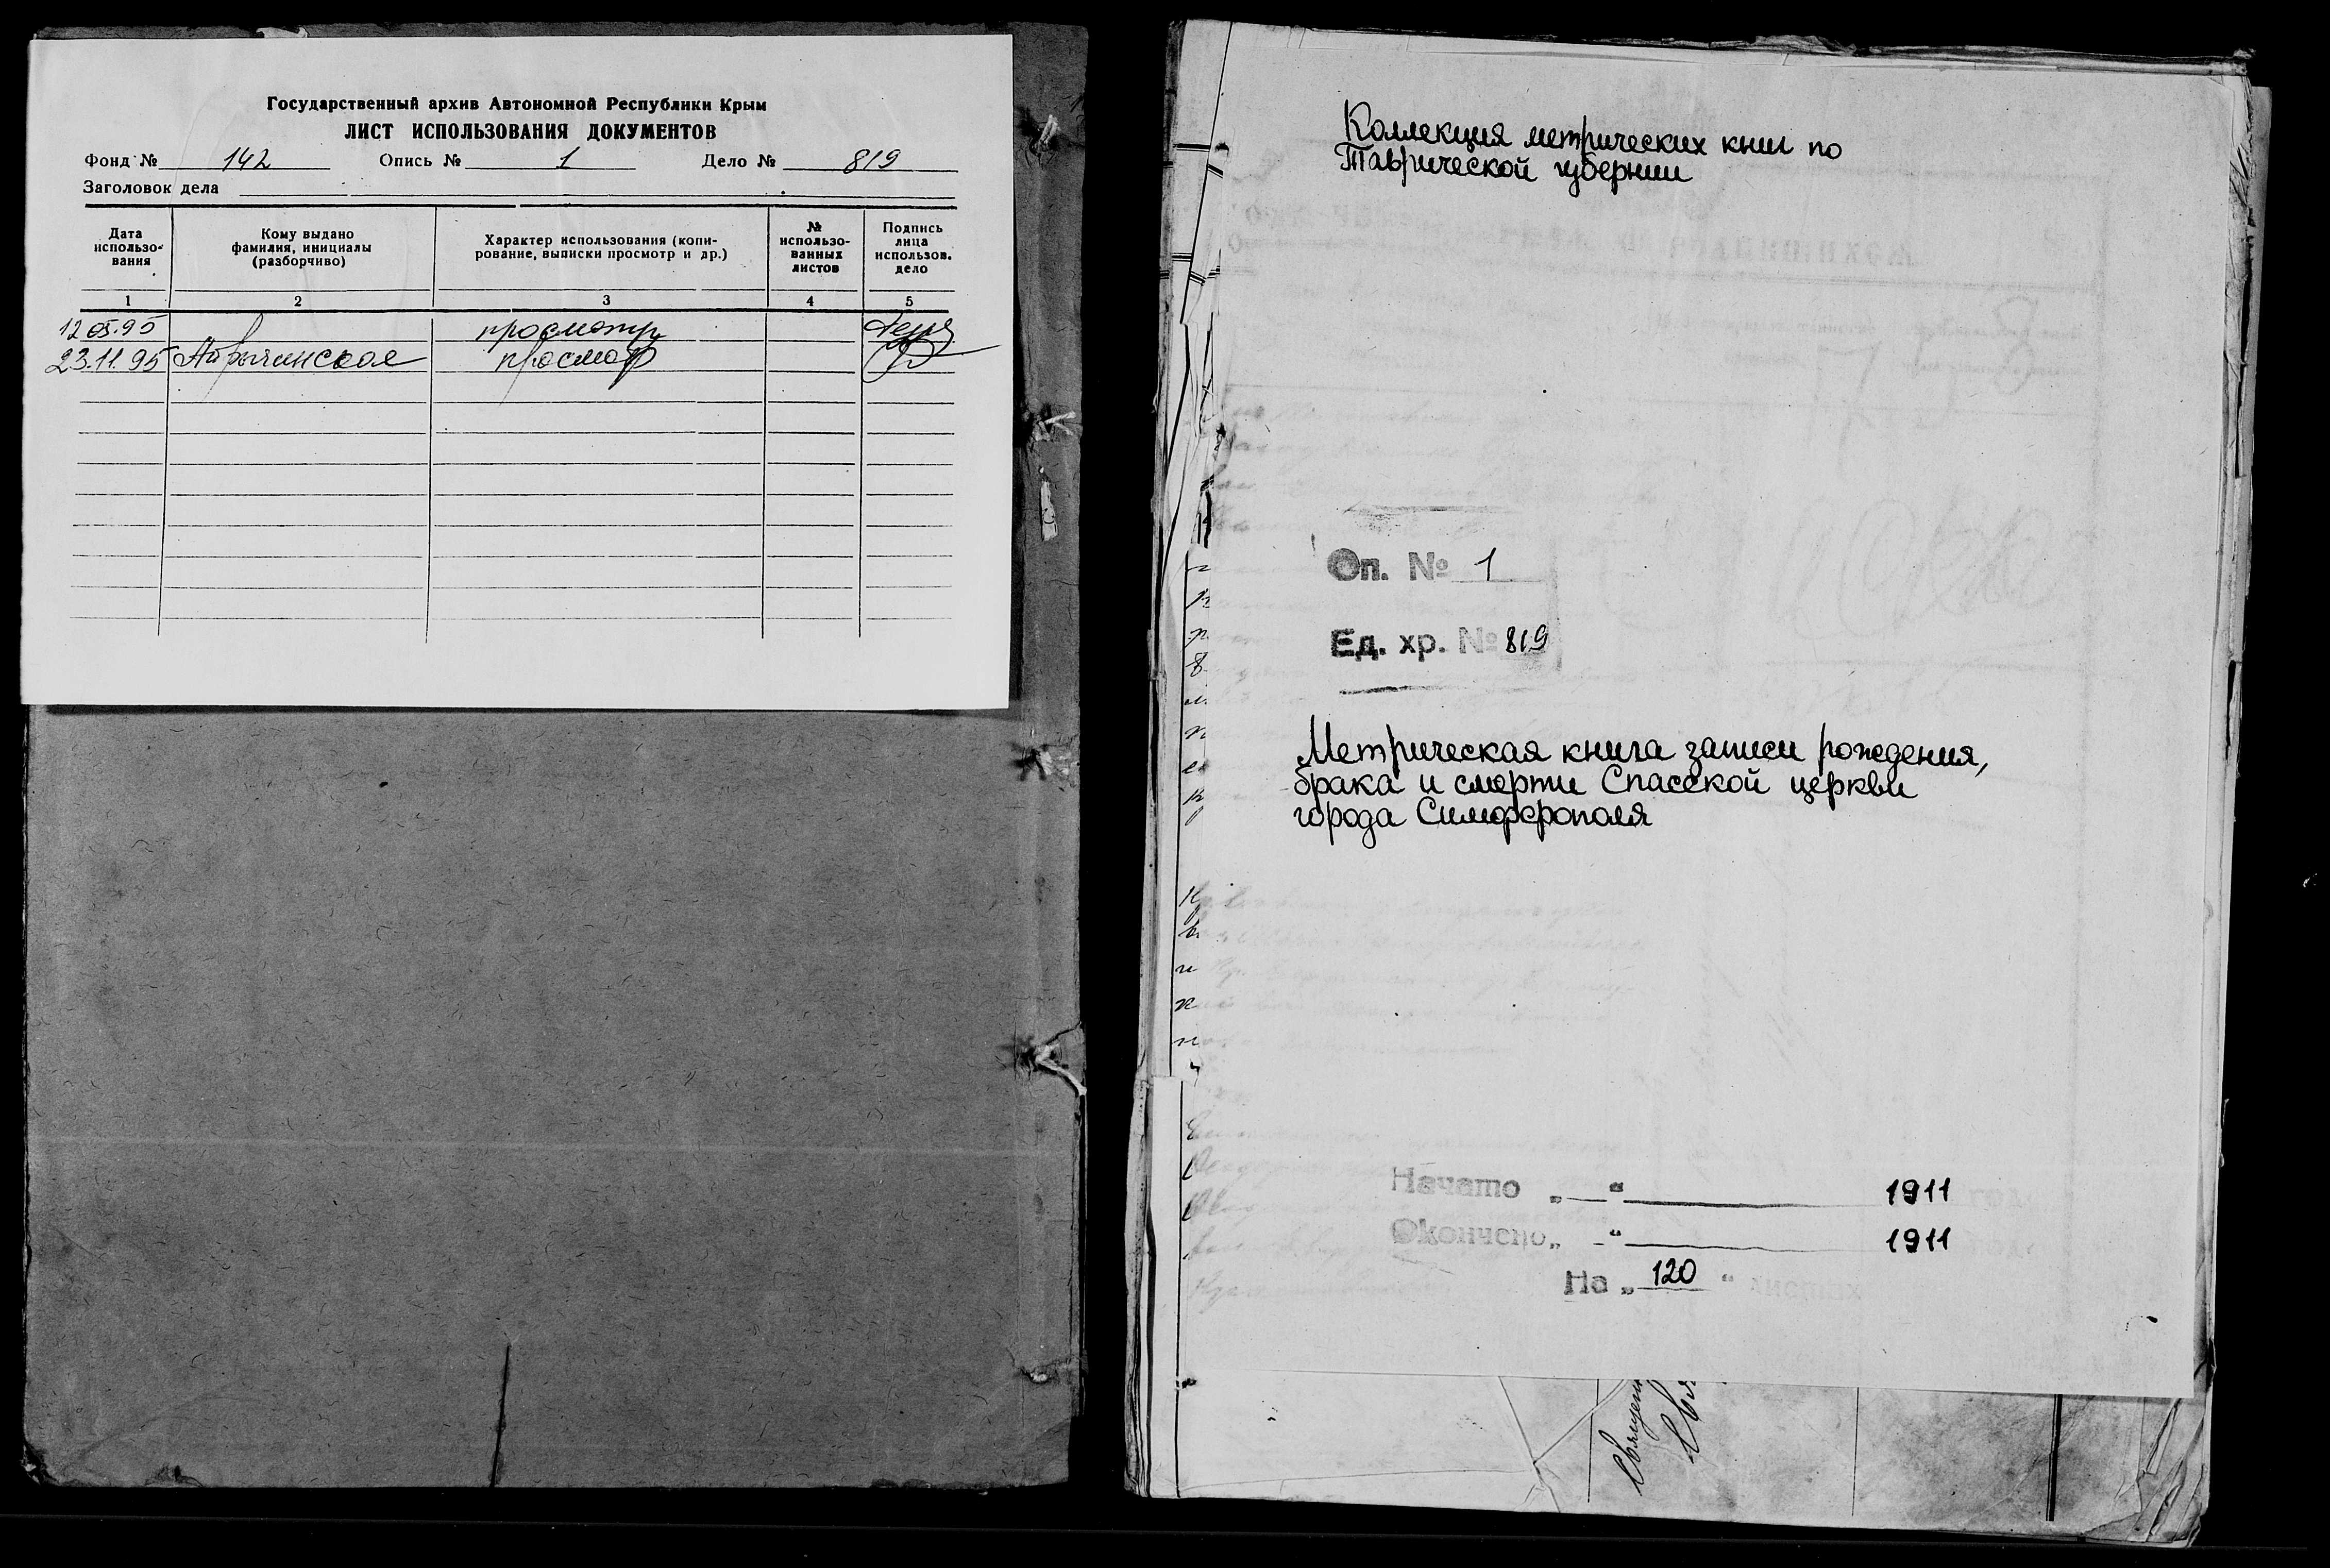 Государственный архив Автономной Республики Крым
ЛИСТ ИСПОЛЬЗОВАНИЯ ДОКУМЕНТОВ
Фонд № 142 Опись № 1 Дело № 819
Заголовок дела
Дата использо-вания
Кому выдано фамилия, инициалы (разборчиво)
Характер использования (копи-рование, выписки просмотр и др.)
№ использо-ванных листов
Подпись лица использов. дело
1 2 3 4 5
12.05.95 просмотр
23.11.95 просмотр
Коллекция метрических книг по
Таврической губернии
Оп. № 1
Ед. хр. № 819
Метрическая книга записи рождения,
брака и смерти Спасской церкви
города Симферополя
Начато „ “ 1911 год
Окончено „ “ 1911 год
На „ 120 “ листах